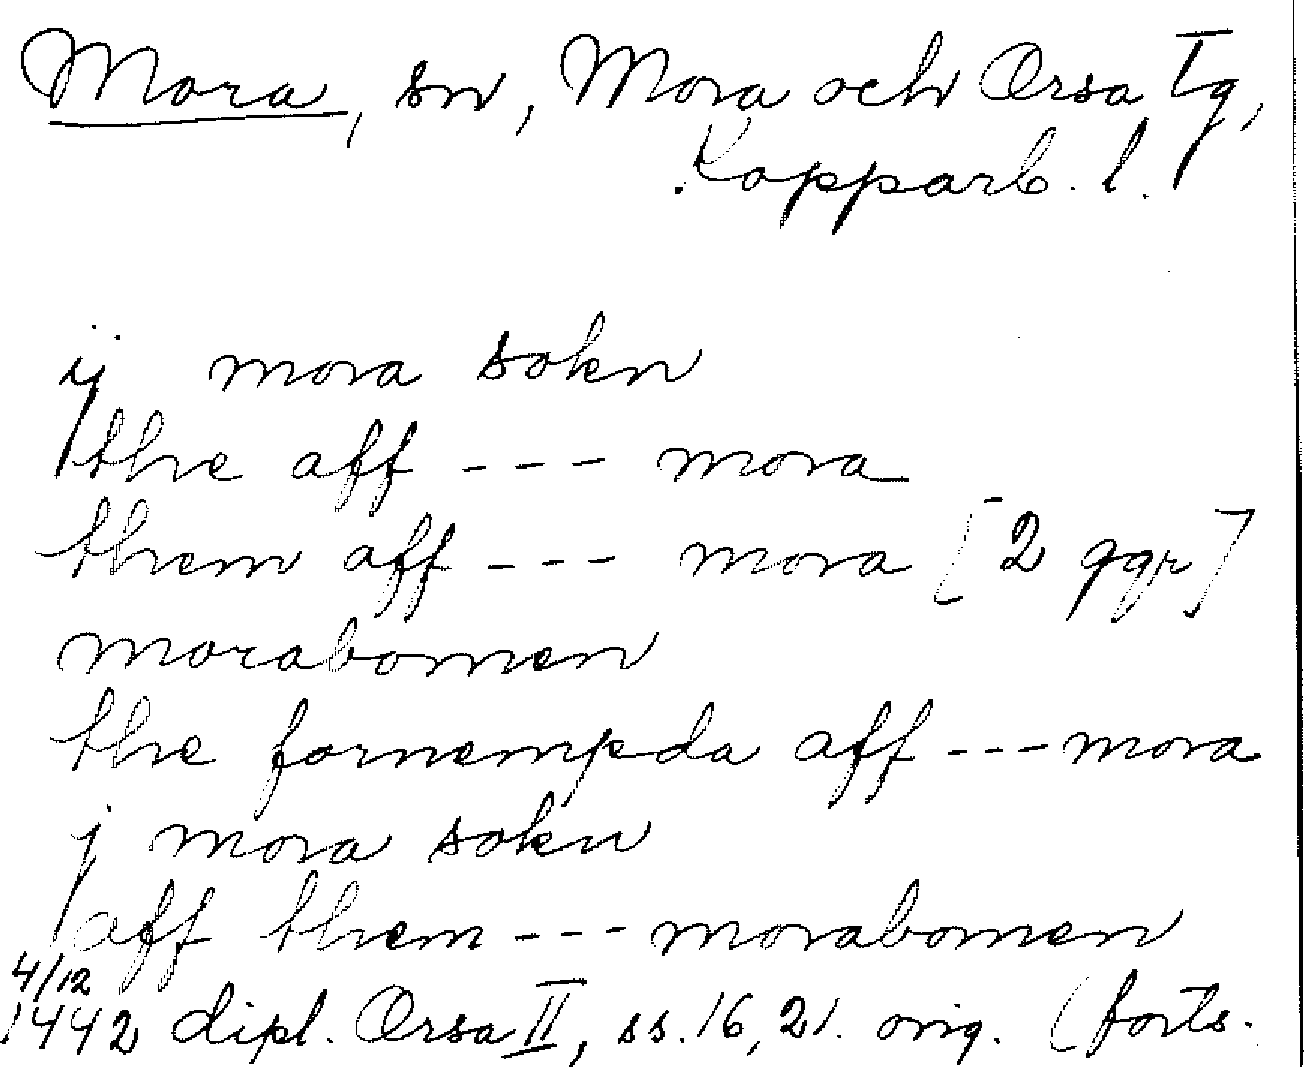 Mora, sn, Mora och Orsa Tg,
Kopparb. l.
ij mora sokn
the aff --- mora
them aff --- mora [2 ggr]
morabomen
the fornempda aff --- mora
j mora sokn
aff them --- morabomen
4/12
1442 dipl. Orsa II, ss. 16, 21. orig. (forts.